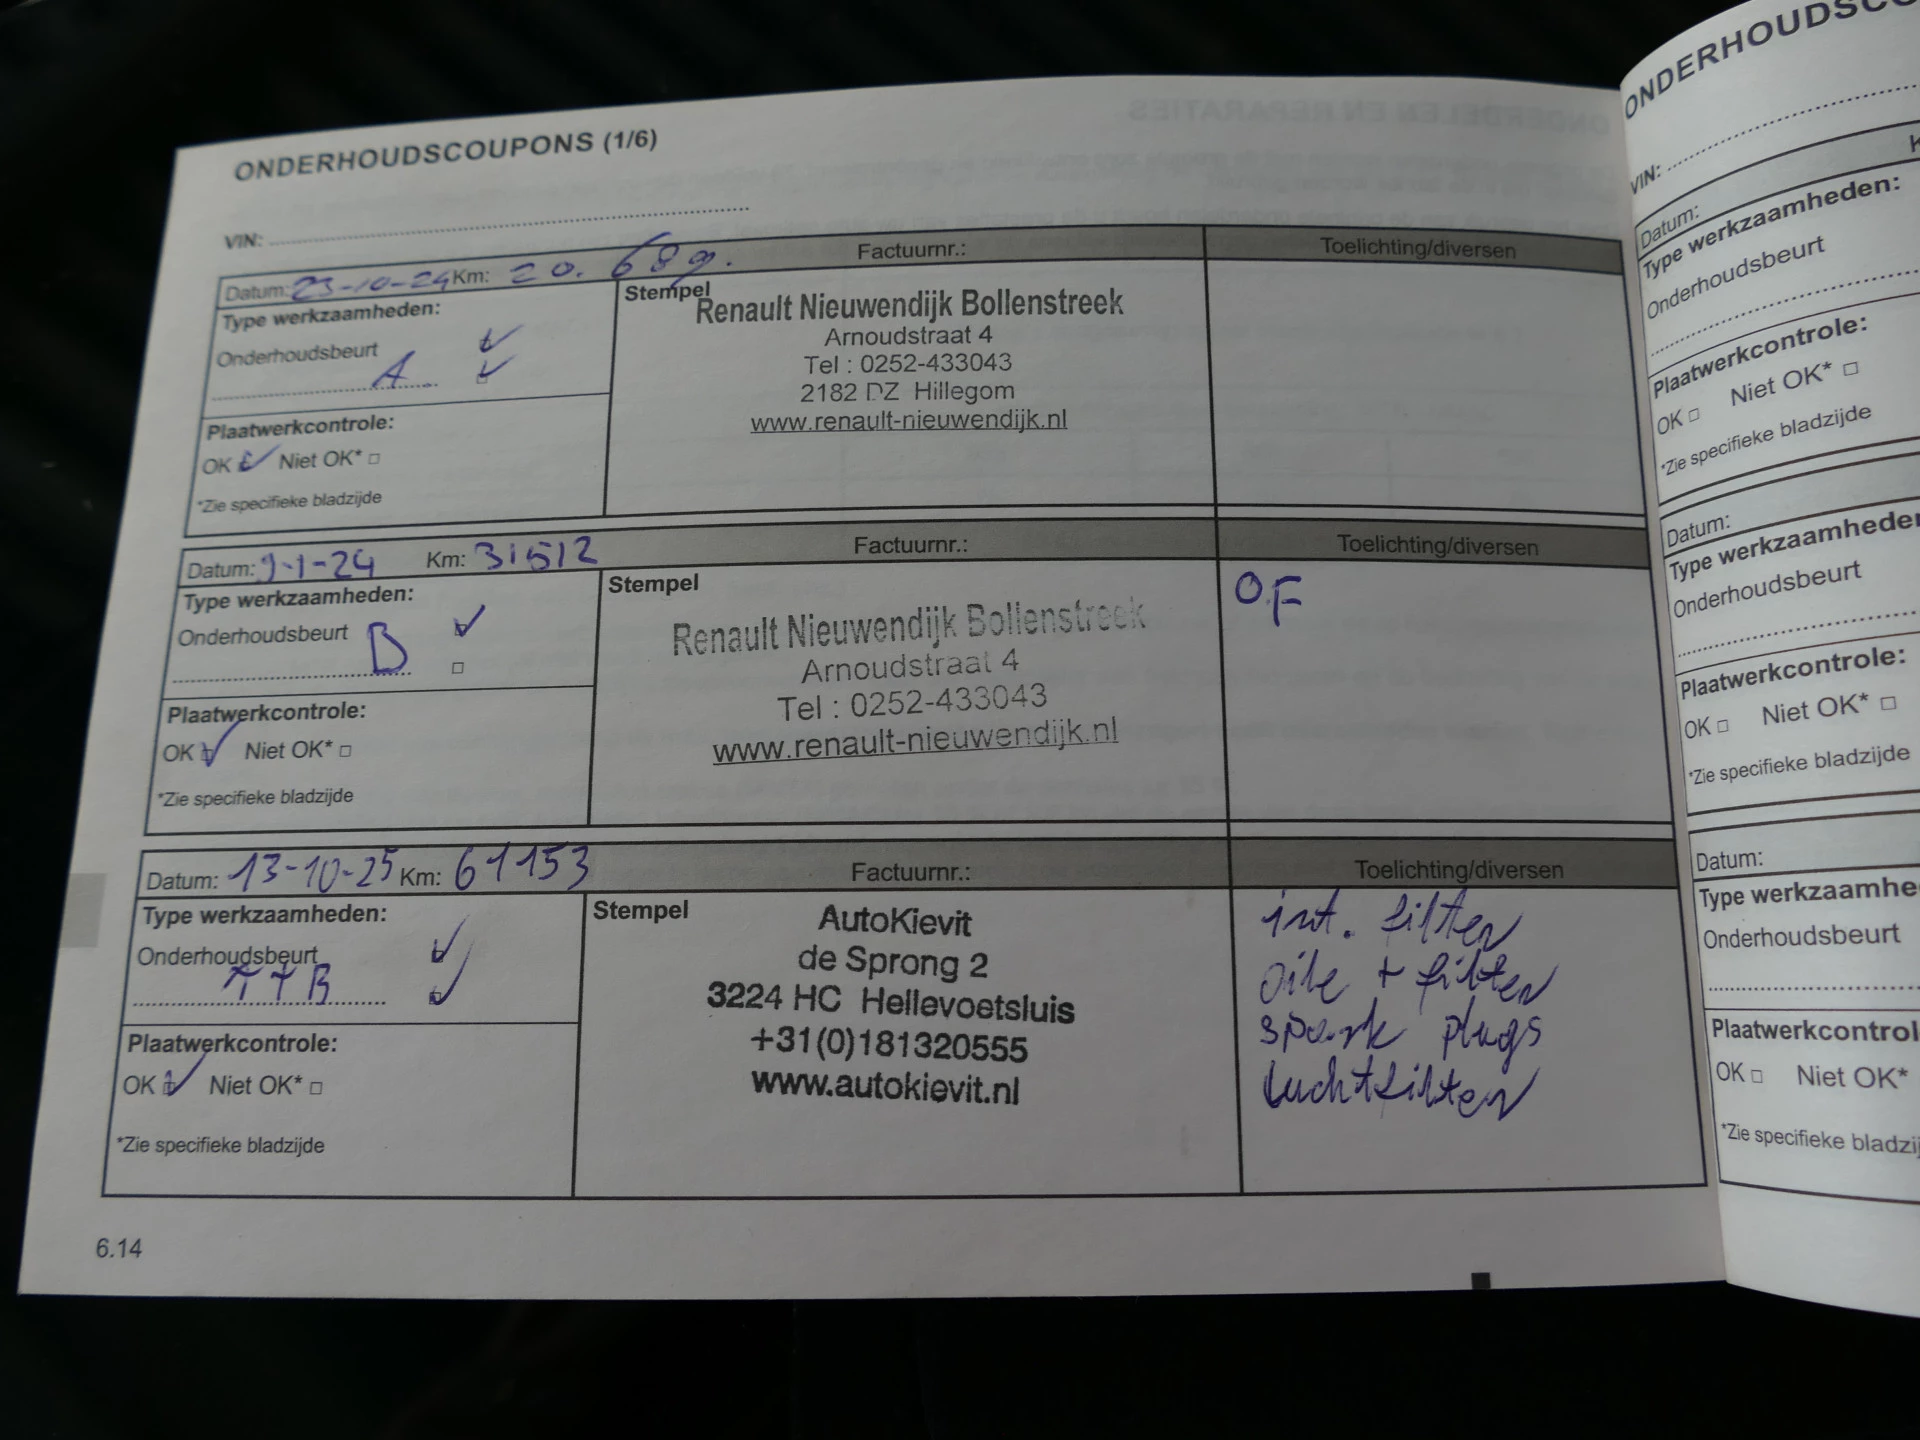 ONDERHOUDSCOUPONS (1/6)
VIN:
Datum: 23-10-24 Km: 20.689. Factuurnr.: Toelichting/diversen
Type werkzaamheden:
Onderhoudsbeurt
A
Plaatwerkcontrole:
OK Niet OK*
*Zie specifieke bladzijde
Stempel
Renault Nieuwendijk Bollenstreek
Arnoudstraat 4
Tel : 0252-433043
2182 DZ Hillegom
www.renault-nieuwendijk.nl
Datum: 9-1-24 Km: 31512 Factuurnr.: Toelichting/diversen
Type werkzaamheden:
Onderhoudsbeurt
B
Plaatwerkcontrole:
OK Niet OK*
*Zie specifieke bladzijde
Stempel
Renault Nieuwendijk Bollenstreek
Arnoudstraat 4
Tel : 0252-433043
www.renault-nieuwendijk.nl
O.F
Datum: 13-10-25 Km: 61153 Factuurnr.: Toelichting/diversen
Type werkzaamheden:
Onderhoudsbeurt
Plaatwerkcontrole:
OK Niet OK*
*Zie specifieke bladzijde
Stempel
AutoKievit
de Sprong 2
3224 HC Hellevoetsluis
+31(0)181320555
www.autokievit.nl
int. filter
oile + filter
spark plugs
luchtfilter
6.14
VIN:
Datum:
Type werkzaamheden:
Onderhoudsbeurt
Plaatwerkcontrole:
OK Niet OK*
*Zie specifieke bladzijde
Datum:
Type werkzaamheden
Onderhoudsbeurt
Plaatwerkcontrole:
OK Niet OK*
*Zie specifieke bladzijde
Datum:
Type werkzaamhe
Onderhoudsbeurt
Plaatwerkcontrol
OK Niet OK*
*Zie specifieke bladzij